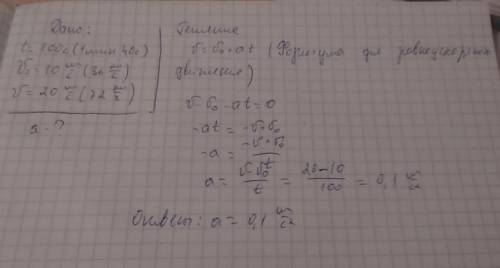 Дано:
t = 100с (1 мин 40с)
v₀ = 10 м/с (36 м/с)
v = 20 м/с (72 м/с)
a - ?
Решение
v = v₀ + at (Формула для равноускорен
движения)
v - v₀ - at = 0
-at = -v + v₀
-a = (-v + v₀)/t
a = (v - v₀)/t = (20-10)/100 = 0,1 м/с²
Ответ: a = 0,1 м/с²